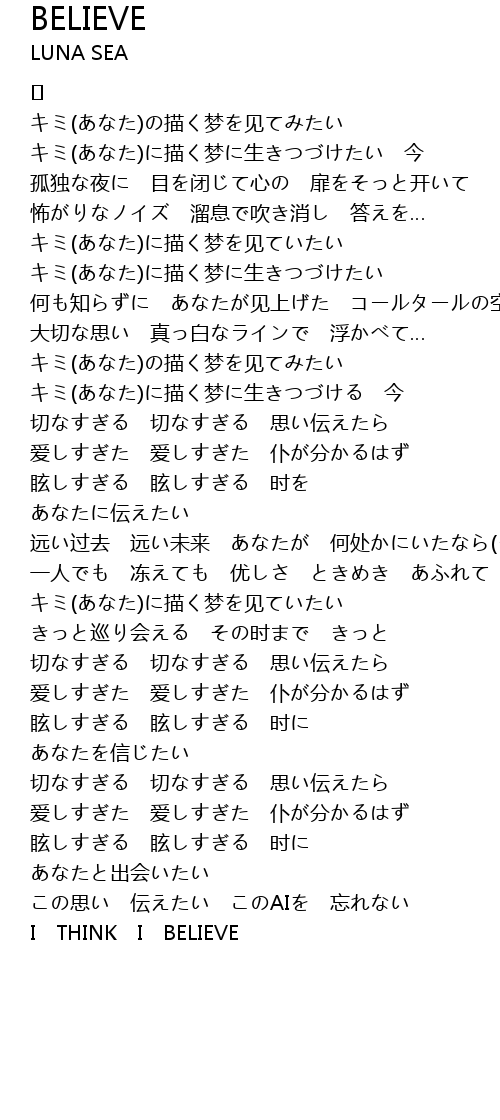 BELIEVE
LUNA SEA
キミ(あなた)の描く梦を见てみたい
キミ(あなた)に描く梦に生きつづけたい　今
孤独な夜に　目を闭じて心の　扉をそっと开いて
怖がりなノイズ　溜息で吹き消し　答えを...
キミ(あなた)に描く梦を见ていたい
キミ(あなた)に描く梦に生きつづけたい
何も知らずに　あなたが见上げた　コールタールの空
大切な思い　真っ白なラインで　浮かべて...
キミ(あなた)の描く梦を见てみたい
キミ(あなた)に描く梦に生きつづける　今
切なすぎる　切なすぎる　思い伝えたら
爱しすぎた　爱しすぎた　仆が分かるはず
眩しすぎる　眩しすぎる　时を
あなたに伝えたい
远い过去　远い未来　あなたが　何处かにいたなら(
一人でも　冻えても　优しさ　ときめき　あふれて
キミ(あなた)に描く梦を见ていたい
きっと巡り会える　その时まで　きっと
切なすぎる　切なすぎる　思い伝えたら
爱しすぎた　爱しすぎた　仆が分かるはず
眩しすぎる　眩しすぎる　时に
あなたを信じたい
切なすぎる　切なすぎる　思い伝えたら
爱しすぎた　爱しすぎた　仆が分かるはず
眩しすぎる　眩しすぎる　时に
あなたと出会いたい
この思い　伝えたい　このAIを　忘れない
I　THINK　I　BELIEVE